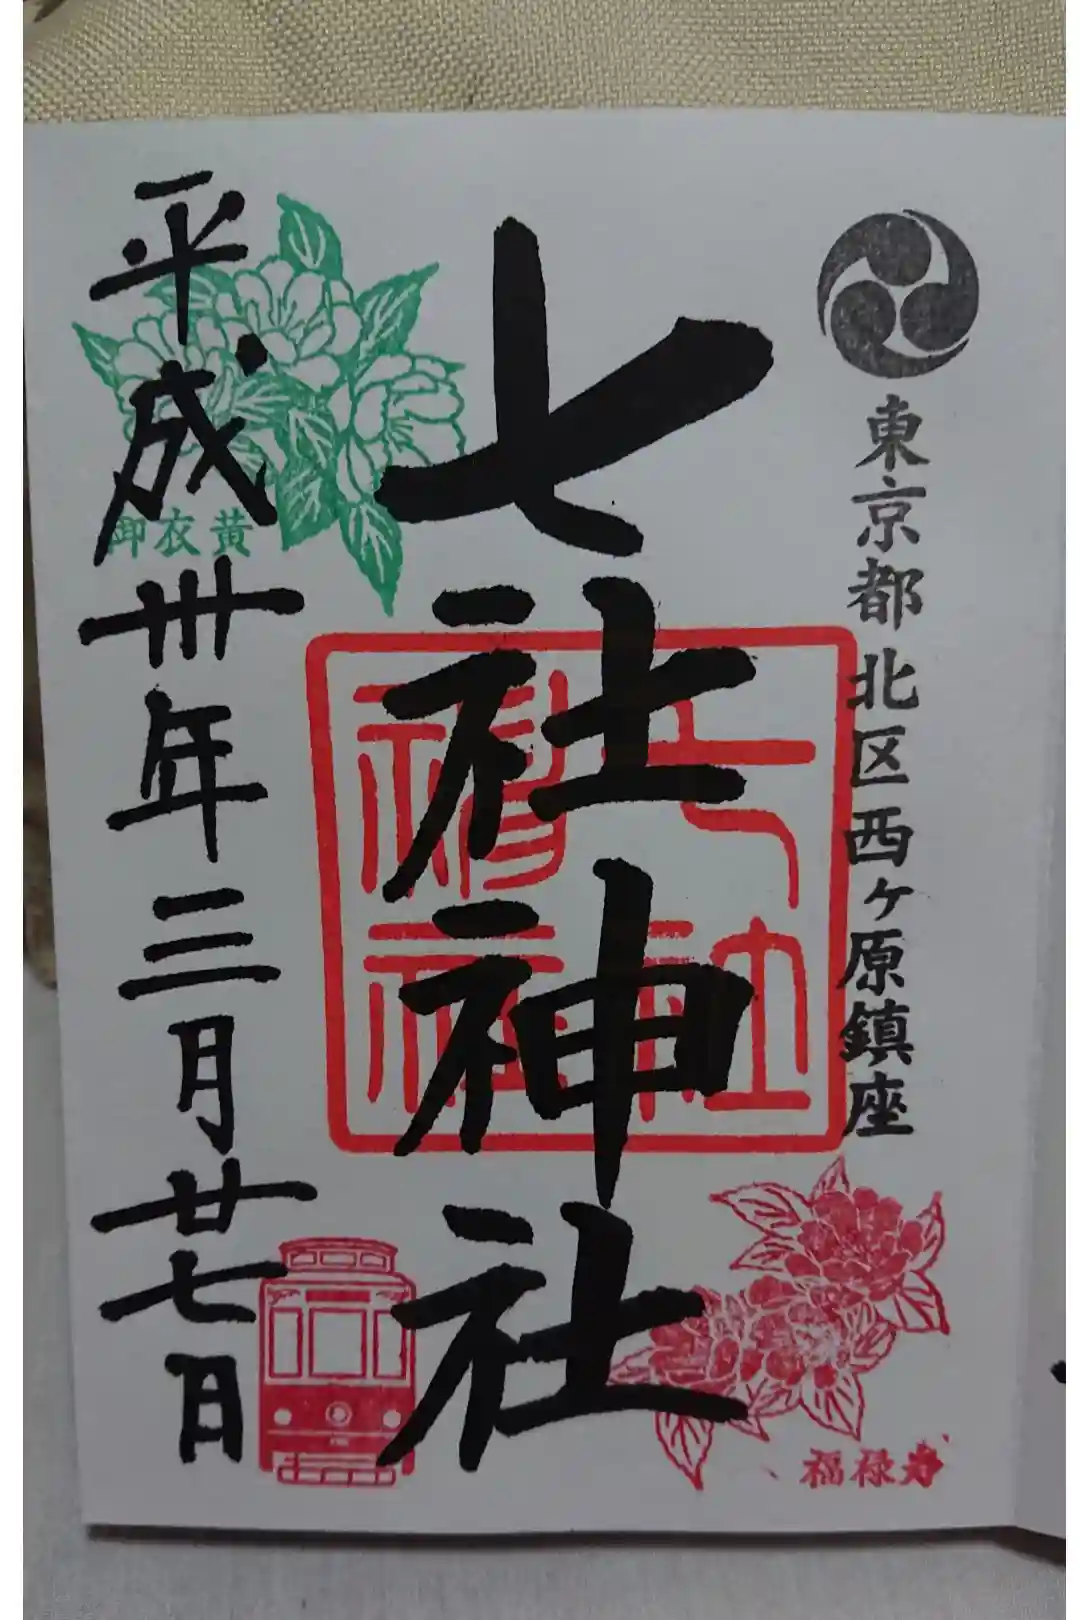 東京都北区西ヶ原鎮座
七社神社
七社
神社
平成卅年三月廿七日
御衣黄
福禄寿